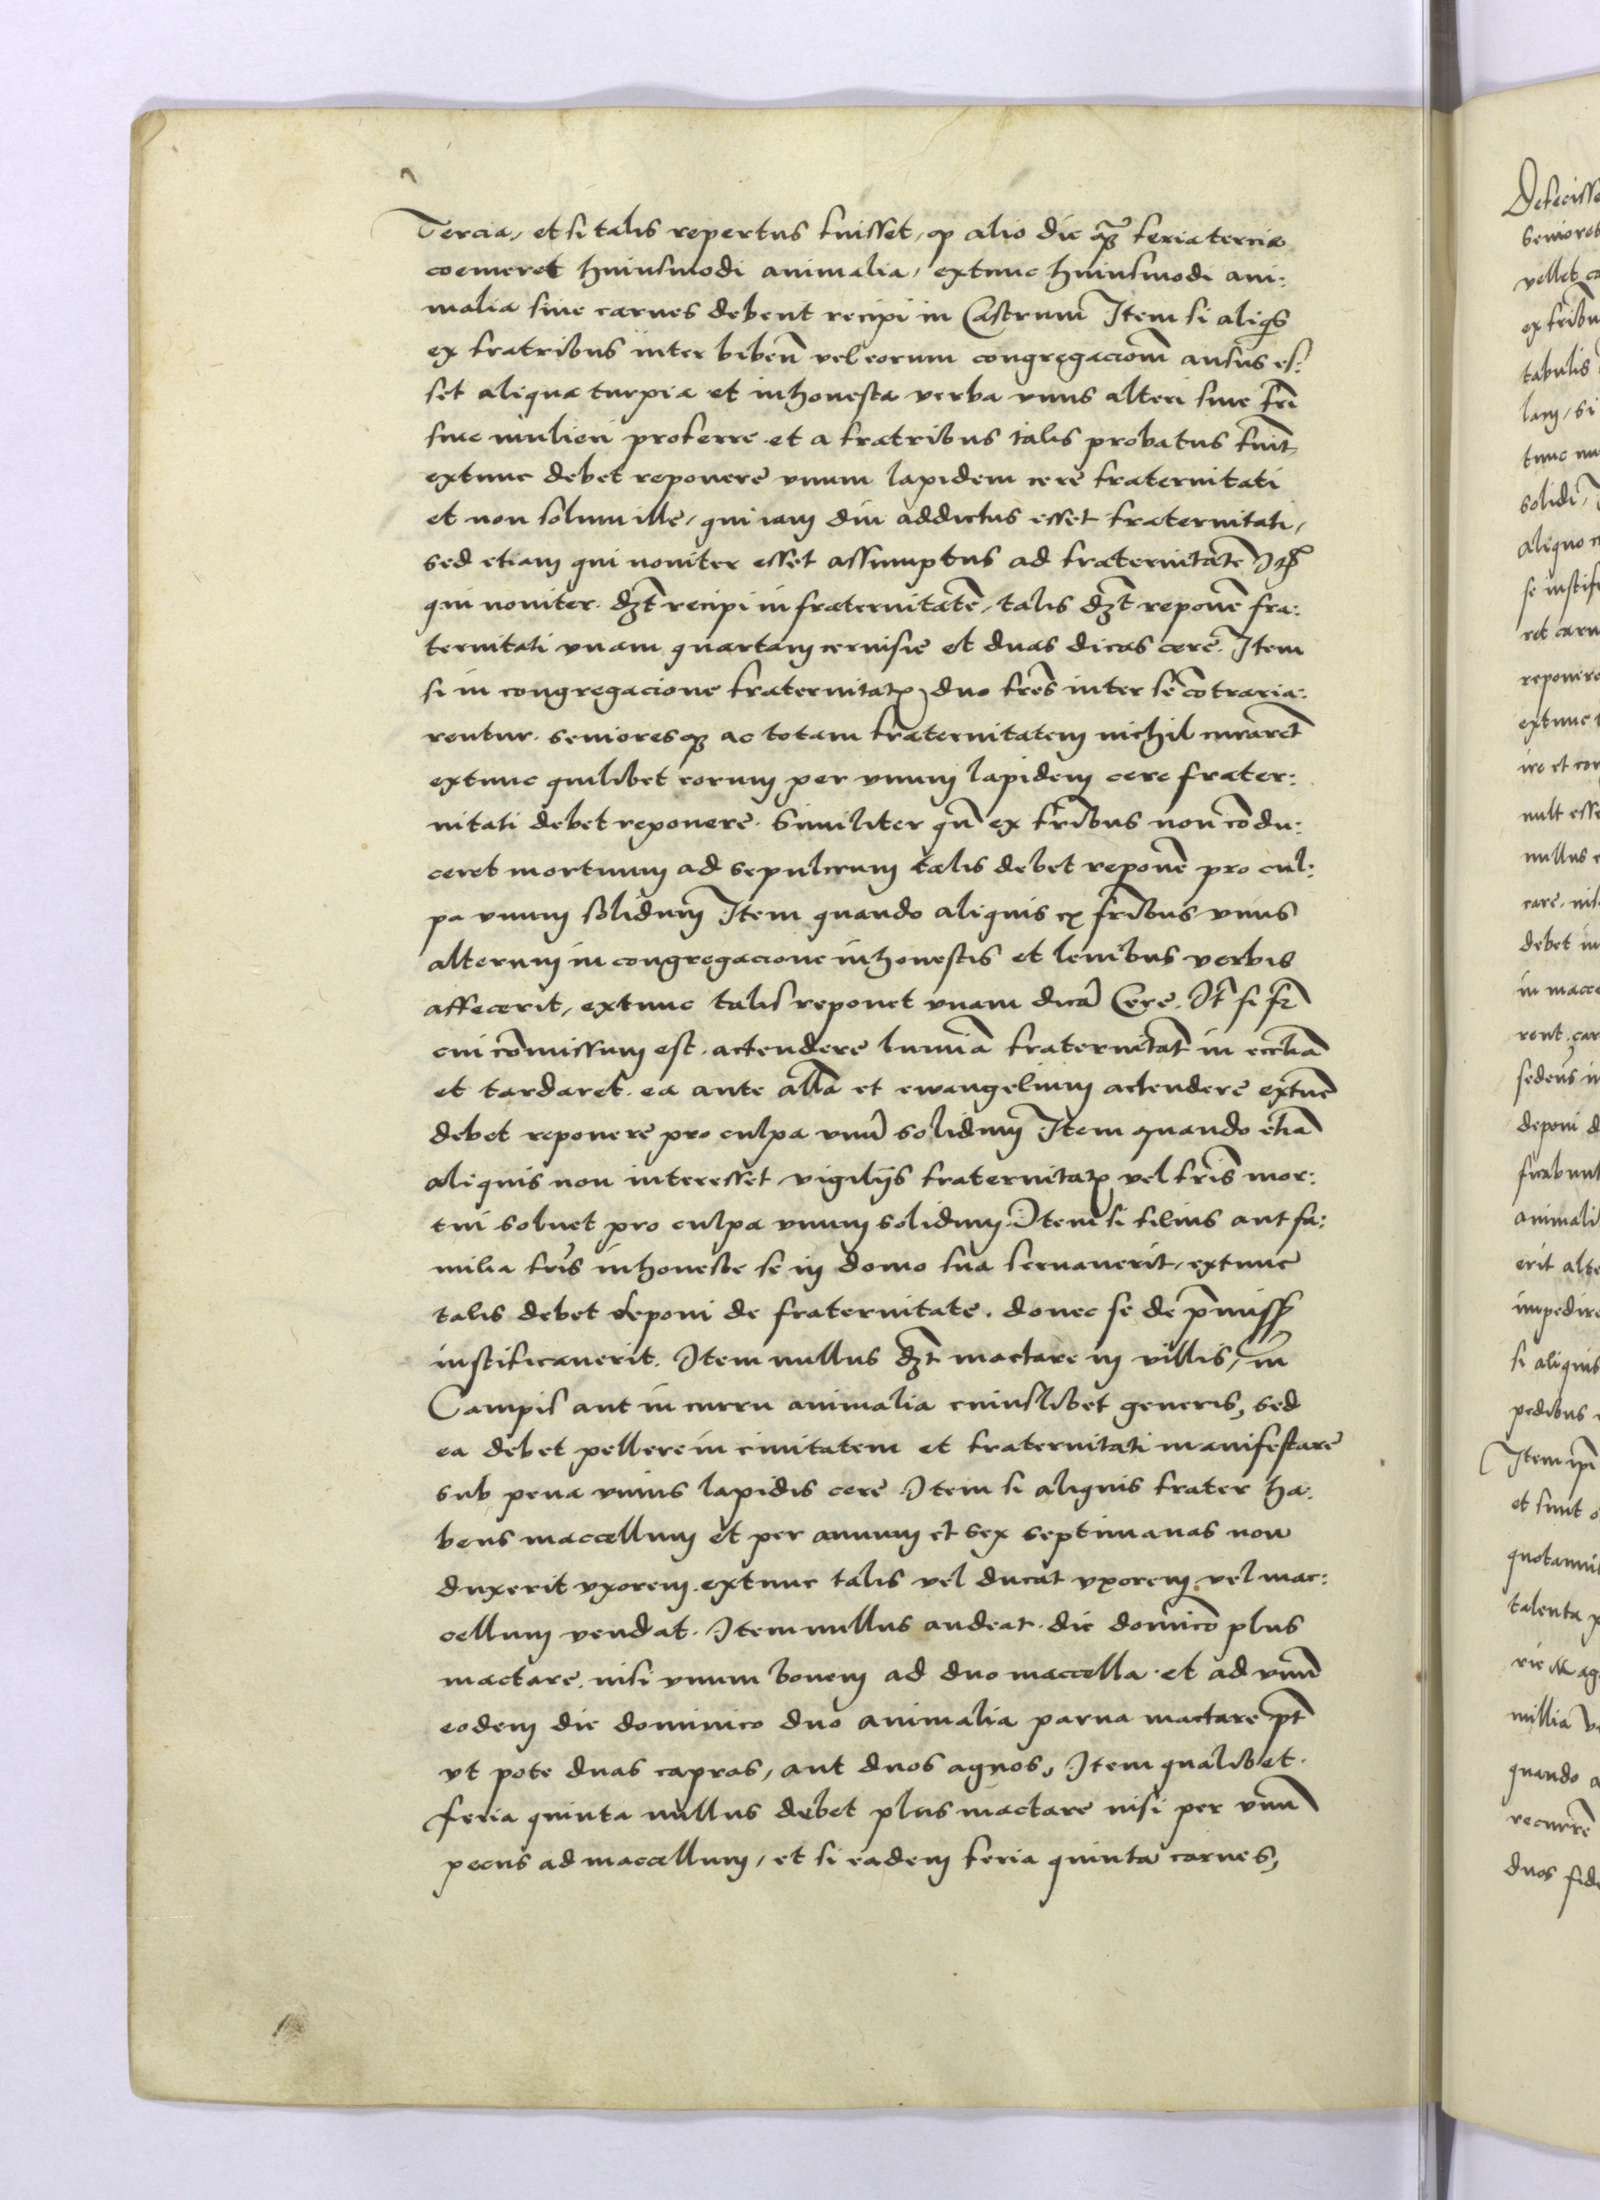 Tercia, et si talis repertus fuisset, ꝙ alio die quā feria tercia
coemeret huiusmodi animalia, extunc huiusmodi ani:
malia siue carnes debent recipi in Castrum̄ Item si aliqs
ex fratribus inter biben̄ vel eorum congregacionē ausus es:
set aliqua turpia et inhonesta verba vnus alteri siue fri̅
siue mulieri proferre et a fratribus talis probatus fuit̄
extunc debet reponere vnum lapidem cere fraternitati
et non solum ille, qui iam diu addictus esset fraternitati,
sed etiam qui nouiter esset assumptus ad fraternitatē
qui nouiter dꝫt̄ recipi in fraternitatē, talis dꝫt̄ reponē fra:
ternitati vnam quartam ceruisie et duas dicas cere. Item
si in congregacione fraternitatꝫ duo frēs inter sē cōtraria:
rentur senioresqꝫ ac totam fraternitatem nichil curarēt
extunc quilibet eorum per vnum lapidem cere frater:
nitati debet reponere. Similiter qn̄ ex fribus non cōdu:
ceret mortuum ad sepulcrum talis debet reponē pro cul:
pa vnum solidum̄ Item quando aliquis ex fribus vnus
alterum in congregacione inhonestis et leuibus verbis
affecerit, extunc talis reponet vnam dicā Cere. It̄ si fr̄
cui cōmissum est actendere lumiā fraternitat̄ in eccliā
et tardaret ea ante alla̅ et ewangelium actendere extūc
debet reponere pro culpa vnū solidum̄ Item quando etiā
aliquis non interesset vigilijs fraternitatꝫ vel fris̄ mor:
tui soluet pro culpa vnum solidum. Item si filius aut fa:
milia fris̄ inhoneste se in domo sua seruauerit, extunc
talis debet deponi de fraternitate. donec se de p̄miss
iustificauerit. Item nullus dꝫt̄ mactare in villis, in̄
Campis aut in curru animalia cuiuslibet generis, sed
ea debet pellere in ciuitatem et fraternitati manifestare
sub pena vnius lapidis cere Item si aliquis frater ha:
bens maccellum et per annum et sex septimanas non
duxerit vxorem extunc talis vel ducat vxorem vel mac:
cellum vendat. Item nullus audeat die dominico plus
mactare nisi vnum bouem ad duo maccella et ad vnū
eodem die dominico duo animalia parua mactare pt̄
vt pote duas capras, aut duos agnos, Item qualibet
feria quinta nullus debet plus mactare nisi per vnū
pecus ad macellum, et si eadem feria quinta carnes,